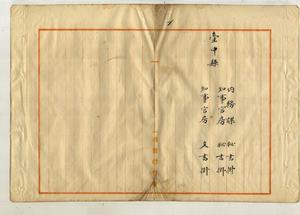 臺中縣
內務課 秘書掛
知事官房 秘書掛
知事官房 文書掛